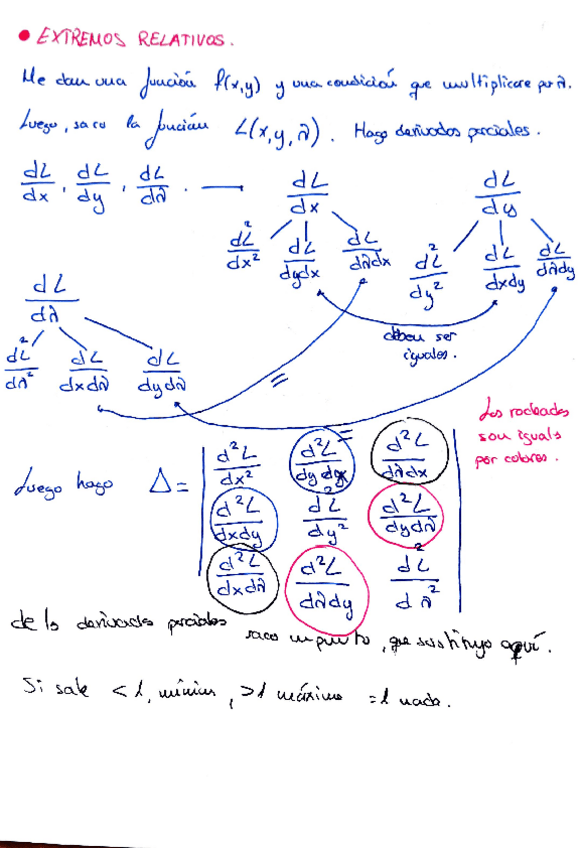 • EXTREMOS RELATIVOS.
Me dan una función f(x,y) y una condición que multiplicare por λ.
Luego, saco la función L(x,y,λ). Hago derivadas parciales.
dL/dx, dL/dy, dL/dλ. — dL/dx dL/dy
d²L/dx² dL/dydx dL/dλdx d²L/dy² dL/dxdy dL/dλdy
dL/dλ
deben ser
iguales.
d²L/dλ² dL/dxdλ dL/dydλ
=
=
Los rodeados
son iguals
por colores.
Luego hago Δ = | d²L/dx² d²L/dydx d²L/dλdx |
| d²L/dxdy d²L/dy² d²L/dydλ |
| d²L/dxdλ d²L/dλdy d²L/dλ² |
de la derivadas parciales saco un punto, que sustituyo aquí.
Si sale <1, mínimo, >1 máximo =1 nada.